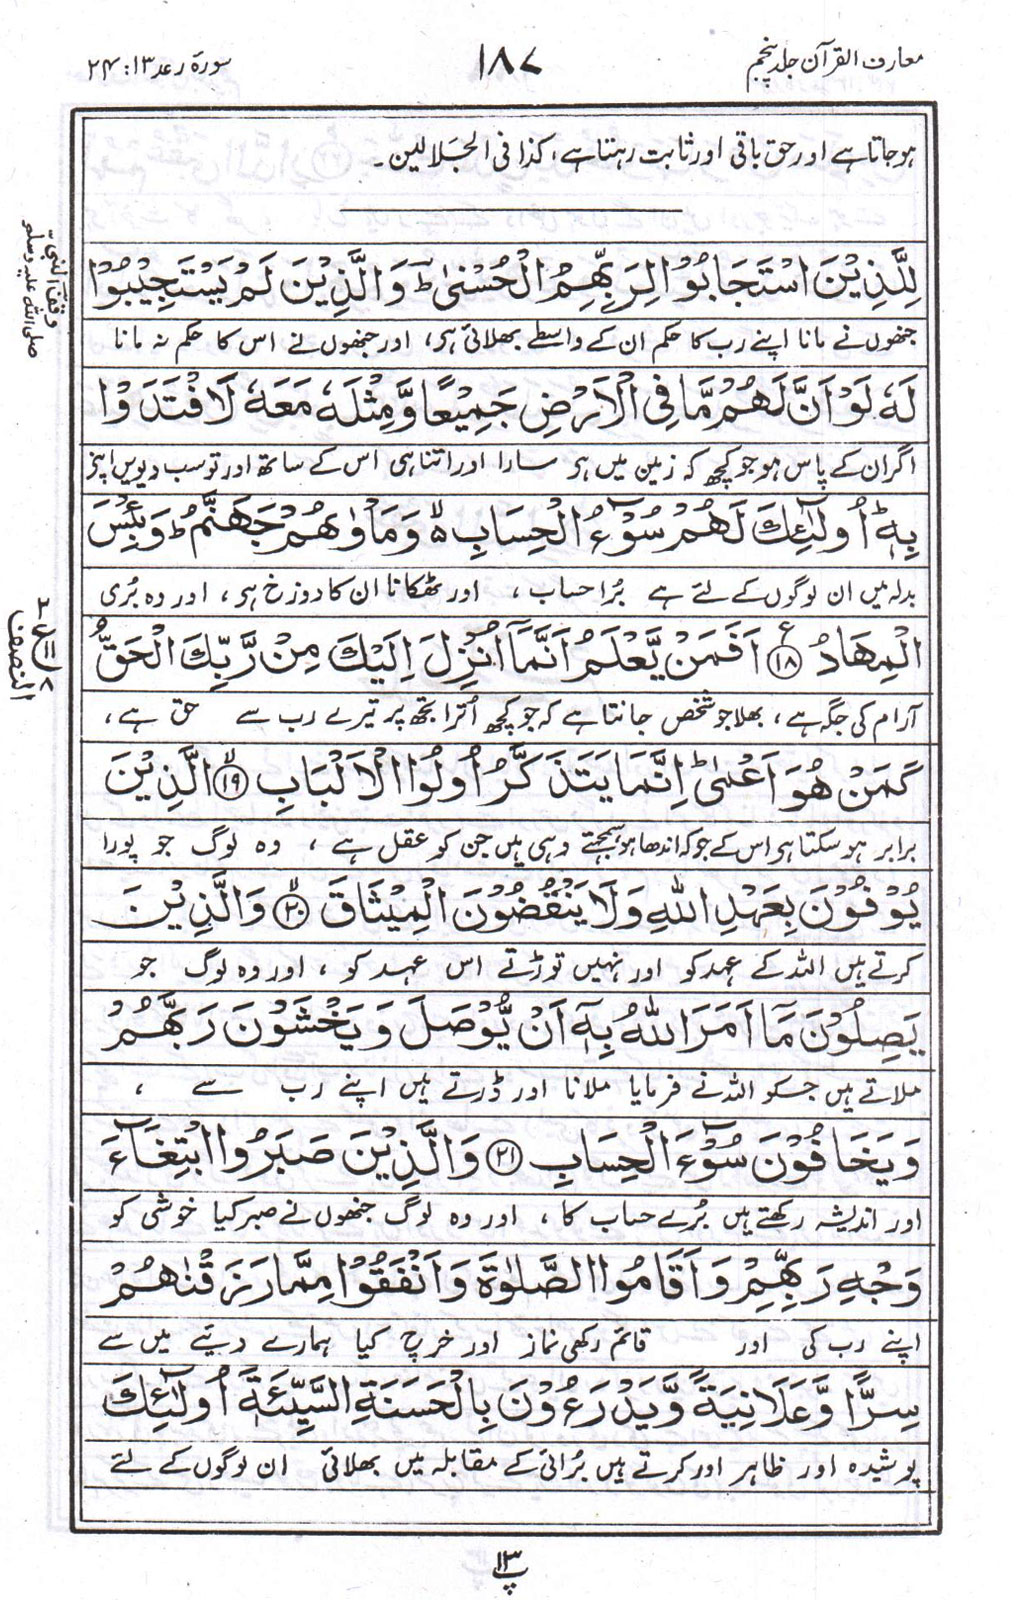 معارف القرآن جلد پنجم
۱۸۷
سورۃ رعد ۱۳: ۲۴
ہوجاتا ہے اور حق باقی اور ثابت رہتا ہے، کذا فی الجلالین۔
لِلَّذِيْنَ اسْتَجَابُوْا لِرَبِّهِمُ الْحُسْنٰى ؕ وَالَّذِيْنَ لَمْ يَسْتَجِيْبُوْا
جنھوں نے مانا اپنے رب کا حکم ان کے واسطے بھلائی ہی، اور جنھوں نے اس کا حکم نہ مانا
لَهٗ لَوْ اَنَّ لَهُمْ مَّا فِى الْاَرْضِ جَمِيْعًا وَّمِثْلَهٗ مَعَهٗ لَافْتَدَوْا
اگر ان کے پاس ہو جو کچھ کہ زمین میں ہی سارا اور اتنا ہی اس کے ساتھ اور تو سب دیویں اپنے
بِهٖ ؕ اُولٰٓئِكَ لَهُمْ سُوْٓءُ الْحِسَابِ ۙ وَمَاْوٰىهُمْ جَهَنَّمُ ؕ وَبِئْسَ
بدلہ میں ان لوگوں کے لئے ہے بُرا حساب، اور ٹھکانا ان کا دوزخ ہی، اور وہ بُری
الْمِهَادُ ﴿۱۸﴾ اَفَمَنْ يَّعْلَمُ اَنَّمَآ اُنْزِلَ اِلَيْكَ مِنْ رَّبِّكَ الْحَقُّ
آرام کی جگہ ہے، بھلا جو شخص جانتا ہے کہ جو کچھ اُترا تجھ پر تیرے رب سے حق ہے،
كَمَنْ هُوَ اَعْمٰى ؕ اِنَّمَا يَتَذَكَّرُ اُولُوا الْاَلْبَابِ ﴿۱۹﴾ الَّذِيْنَ
برابر ہوسکتا ہی اس کے جو کہ اندھا ہو سمجھتے وہی ہیں جن کو عقل ہے، وہ لوگ جو پورا
يُوْفُوْنَ بِعَهْدِ اللّٰهِ وَلَا يَنْقُضُوْنَ الْمِيْثَاقَ ﴿۲۰﴾ وَالَّذِيْنَ
کرتے ہیں اللہ کے عہد کو اور نہیں توڑتے اس عہد کو، اور وہ لوگ جو
يَصِلُوْنَ مَآ اَمَرَ اللّٰهُ بِهٖٓ اَنْ يُّوْصَلَ وَيَخْشَوْنَ رَبَّهُمْ
ملاتے ہیں جسکو اللہ نے فرمایا ملانا اور ڈرتے ہیں اپنے رب سے،
وَيَخَافُوْنَ سُوْٓءَ الْحِسَابِ ﴿۲۱﴾ وَالَّذِيْنَ صَبَرُوا ابْتِغَآءَ
اور اندیشہ رکھتے ہیں بُرے حساب کا، اور وہ لوگ جنھوں نے صبر کیا خوشی کو
وَجْهِ رَبِّهِمْ وَاَقَامُوا الصَّلٰوةَ وَاَنْفَقُوْا مِمَّا رَزَقْنٰهُمْ
اپنے رب کی اور قائم رکھی نماز اور خرچ کیا ہمارے دیئے میں سے
سِرًّا وَّعَلَانِيَةً وَّيَدْرَءُوْنَ بِالْحَسَنَةِ السَّيِّئَةَ اُولٰٓئِكَ
پوشیدہ اور ظاہر اور کرتے ہیں بُرائی کے مقابلہ میں بھلائی ان لوگوں کے لئے
وقف النبی
صلی اللہ علیہ وسلم
النصف
پ ۱۳